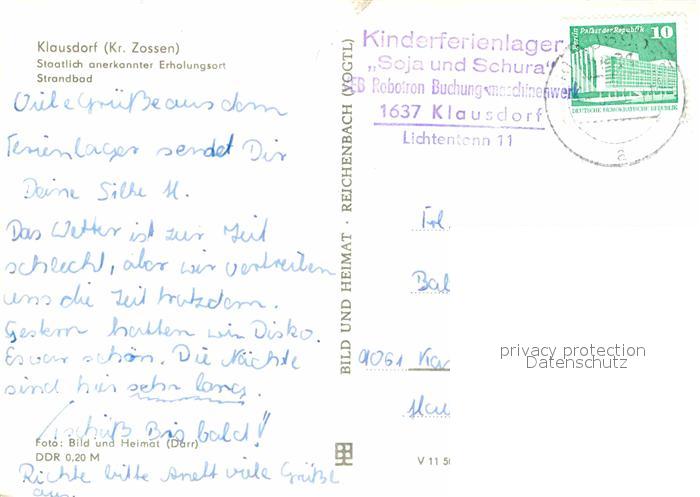 Klausdorf (Kr. Zossen)
Staatlich anerkannter Erholungsort
Strandbad
Viele Grüße aus dem
Ferienlager sendet Dir
Deine Silke H.
Das Wetter ist zur Zeit
schlecht, aber wir vertreiben
uns die Zeit trotzdem.
Gestern hatten wir Disko.
Es war schön. Die Nächte
sind hier sehr lang.
Tschüß Bis bald!
Foto: Bild und Heimat (Darr)
DDR 0,20 M
Richte bitte Anett viele Grüße
aus.
BILD UND HEIMAT · REICHENBACH (VOGTL)
Kinderferienlager
„Soja und Schura"
VEB Robotron Buchungsmaschinenwerk
1637 Klausdorf
Lichtentann 11
Palast der Republik 10
DEUTSCHE DEMOKRATISCHE REPUBLIK
a
Frl.
9061
V 11 50
privacy protection
Datenschutz